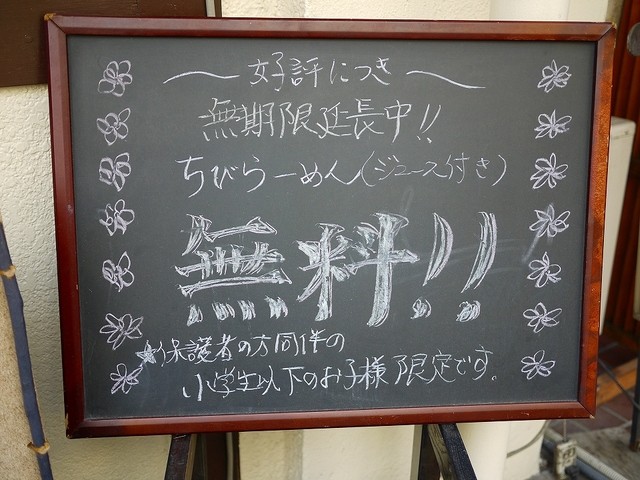 〜好評につき〜
無期限延長中!!
ちびらーめん(ジュース付き)
無料!!
★保護者の方同伴の
小学生以下のお子様限定です。